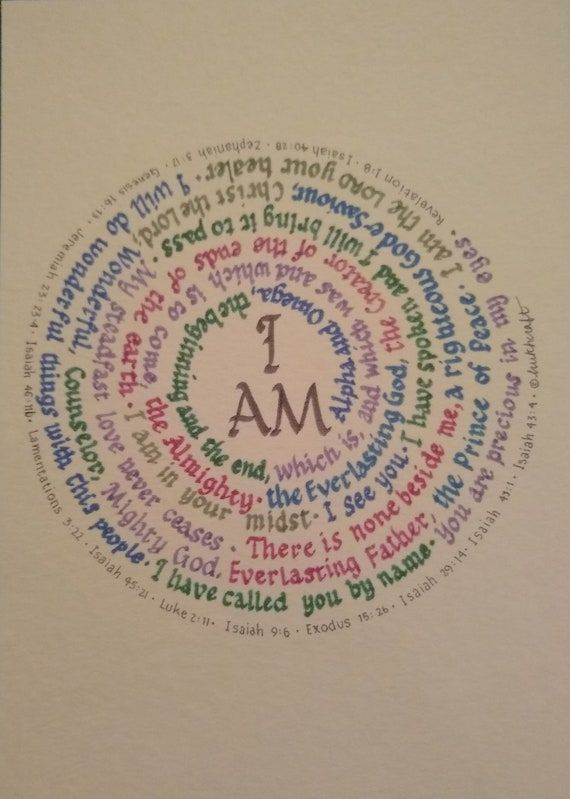 I
AM
Alpha and Omega, the beginning and the end, which is, and which was and which is to come, the Almighty · the Everlasting God, the Creator of the ends of the earth · I am in your midst · I see you · I have spoken and I will bring it to pass · My steadfast love never ceases · There is none beside me, a righteous God & Saviour, Christ the Lord; Wonderful, Counselor, Mighty God, Everlasting Father, the Prince of Peace · I am the LORD your healer · I will do wonderful things with this people · I have called you by name · You are precious in my eyes ·
Revelation 1:8 · Isaiah 40:28 · Zephaniah 3:17 · Genesis 16:13 · Jeremiah 23:23,4 · Isaiah 46:11b · Lamentations 3:22 · Isaiah 45:21 · Luke 2:11 · Isaiah 9:6 · Exodus 15:26 · Isaiah 29:14 · Isaiah 43:1 · Isaiah 43:4 · ©